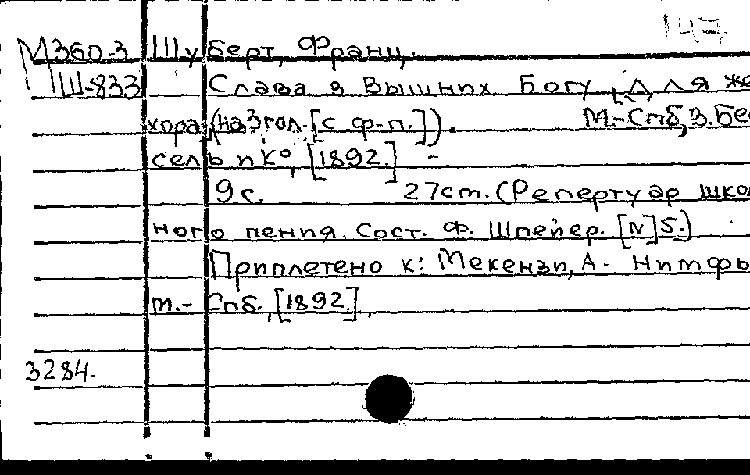 147
М360-3 Шуберт, Франц.
Ш-833 Слава в Вышних Богу, Для же
хора (на 3 гол. [с ф-п.]). М.-Спб, В. Бес
сель и К°, [1892.] -
9 с. 27 cm. (Репертуар школ
ного пения. Сост. Ф. Шпейер. [N] 5.)
Приплетено к: Мекензи, А. - Нимфы
М.- Спб., [1892],
3284.